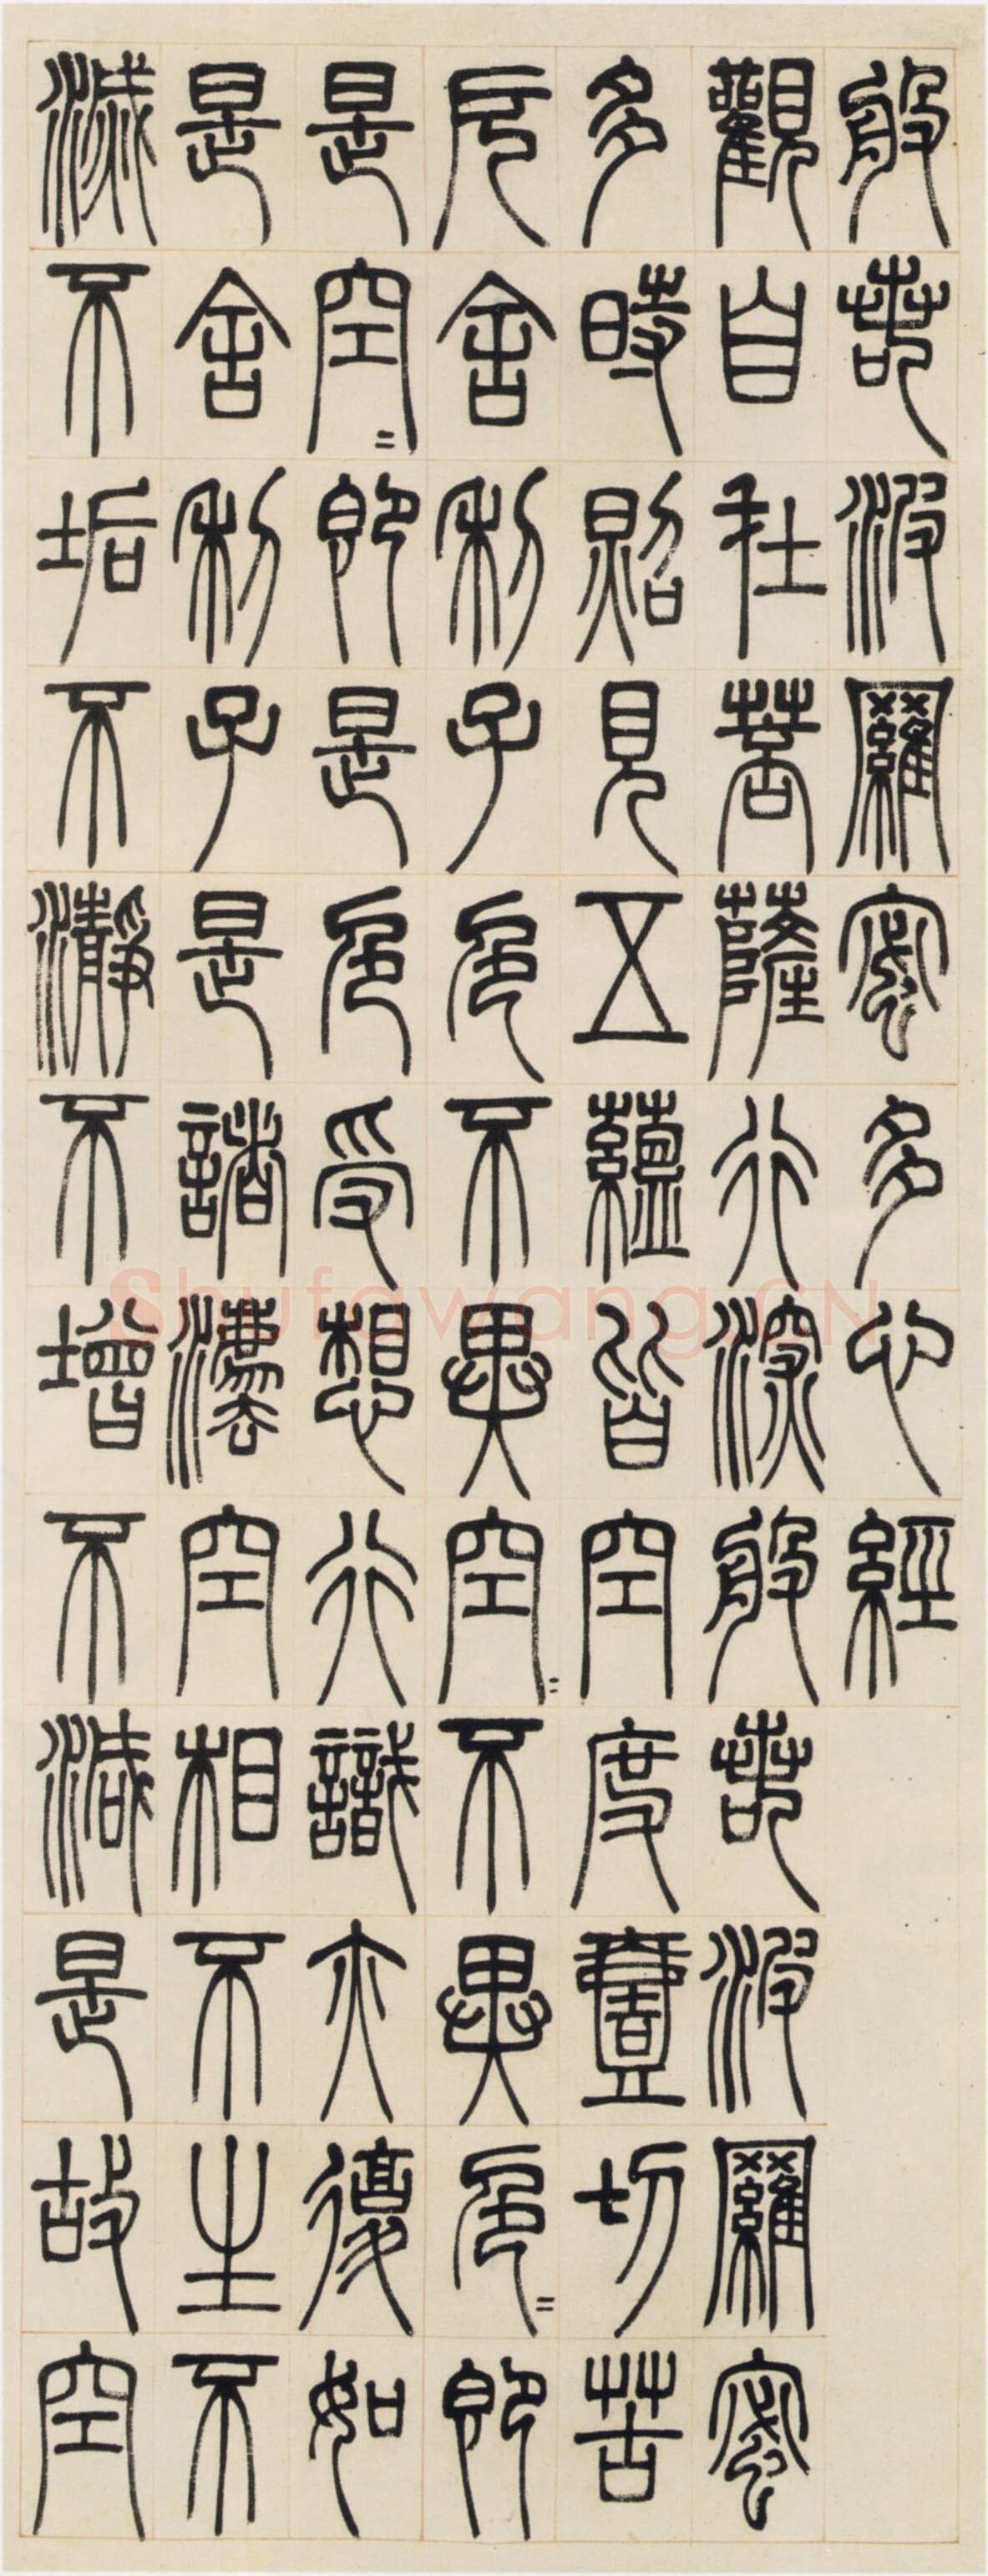 般若波羅蜜多心經
觀自在菩薩行深般若波羅蜜
多時照見五蘊皆空度壹切苦
厄舍利子色不異空〻不異色〻即
是空〻即是色受想行識亦復如
是舍利子是諸灋空相不生不
滅不垢不瀞不增不減是故空
Shufawang.CN